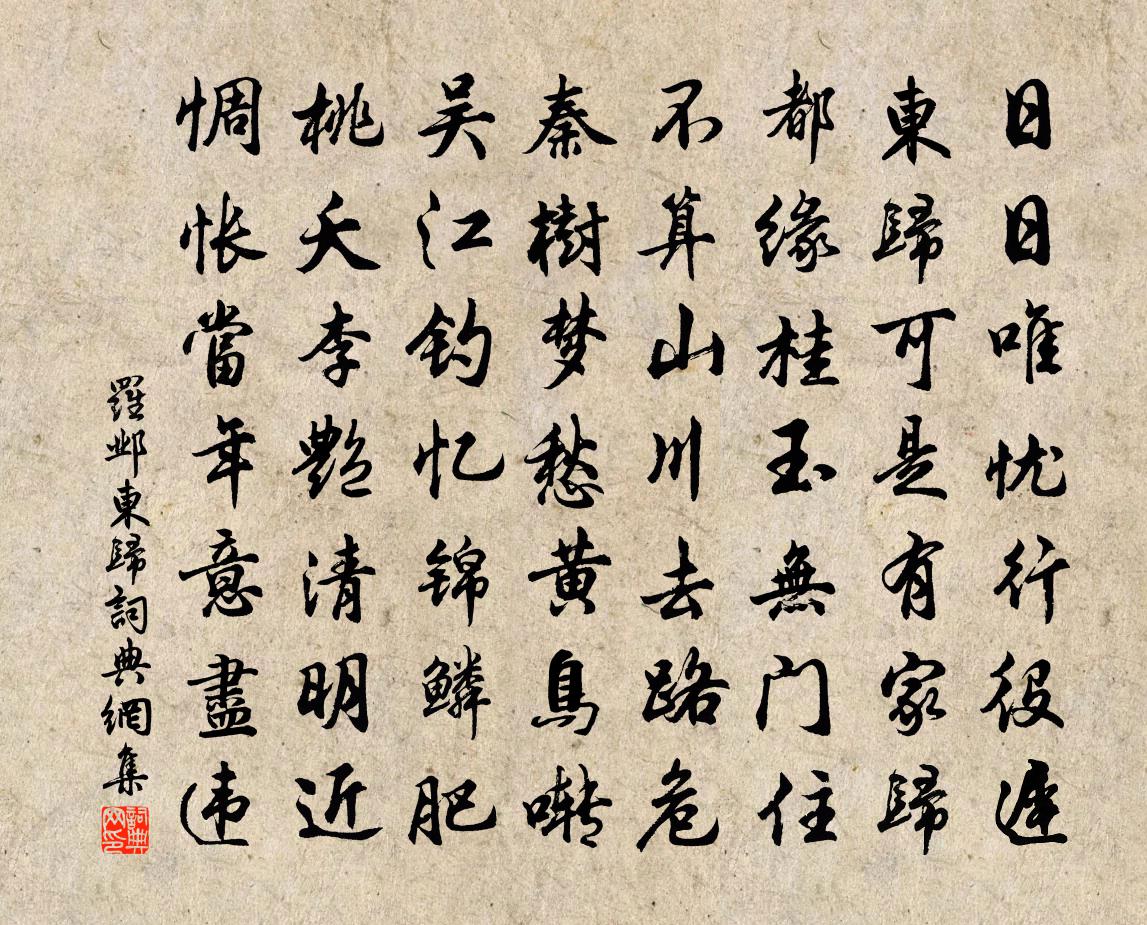 日日唯忧行役遲
東歸可是有家歸
都緣桂玉無门住
不算山川去路危
秦樹梦愁黄鳥囀
吴江钓忆錦鱗肥
桃夭李艷清明近
惆怅當年意盡违
羅邺東歸詞典網集
詞典网印